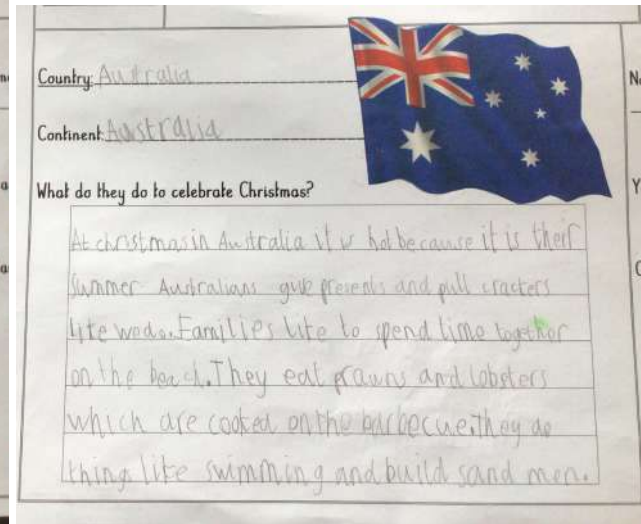 Country: Australia
Continent Australia
What do they do to celebrate Christmas?
At christmas in Australia it is hot because it is their
Summer Australians give presents and pull crackers
like we do. Families like to spend time together
on the beach. They eat prawns and lobsters
which are cooked on the barbecue. They do
things like swimming and build sand men.